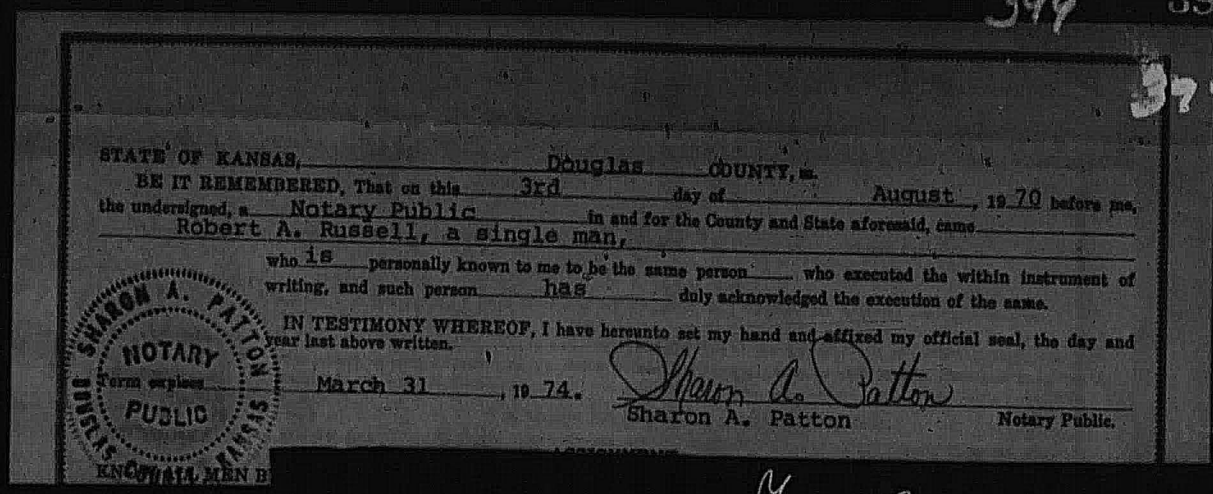 344
37
STATE OF KANSAS, Douglas COUNTY, ss.
BE IT REMEMBERED, That on this 3rd day of August, 1970 before me,
the undersigned, a Notary Public in and for the County and State aforesaid, came
Robert A. Russell, a single man,
who is personally known to me to be the same person who executed the within instrument of
writing, and such person has duly acknowledged the execution of the same.
IN TESTIMONY WHEREOF, I have hereunto set my hand and affixed my official seal, the day and
year last above written.
Term expires March 31, 1974.
Sharon A. Patton
Sharon A. Patton Notary Public.
SHARON A. PATTON
NOTARY
PUBLIC
DOUGLAS COUNTY KANSAS
KNOW ALL MEN B